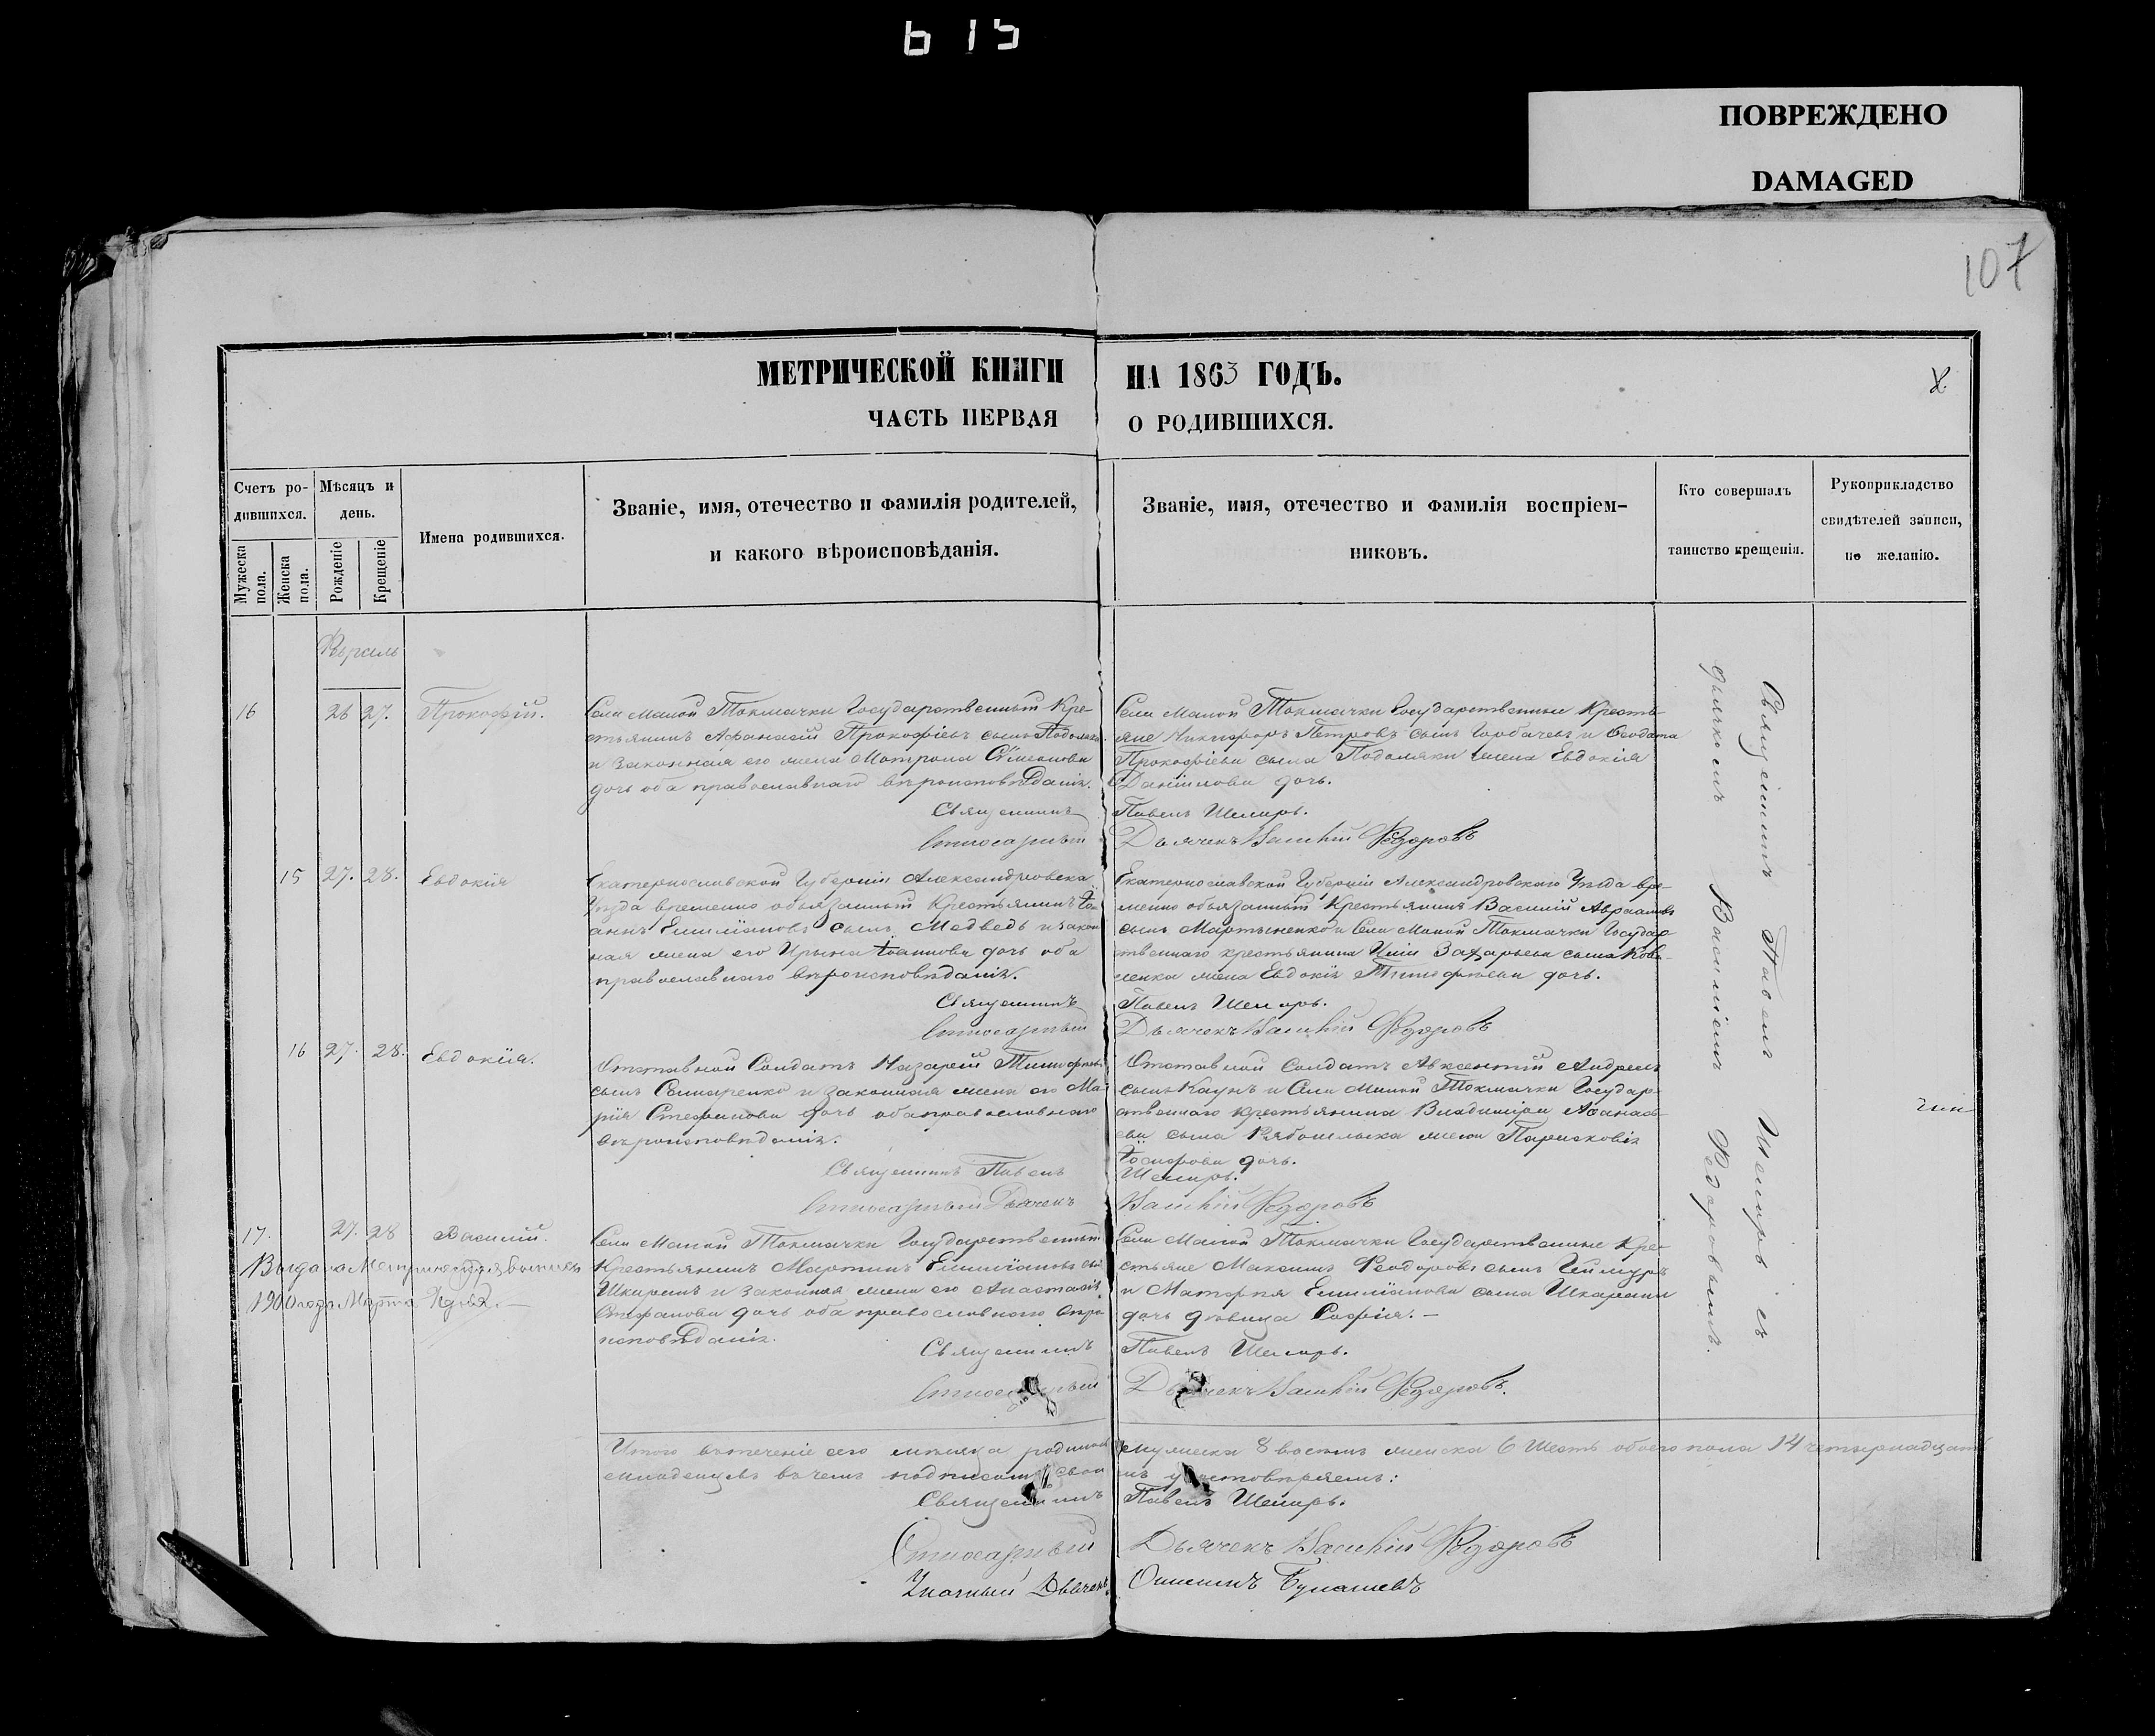 615
ПОВРЕЖДЕНО
DAMAGED
107
МЕТРИЧЕСКОЙ КНИГИ НА 1863 ГОДЪ.
ЧАСТЬ ПЕРВАЯ О РОДИВШИХСЯ.
Счетъ ро-
дившихся.
Мужеска
пола.
Женска
пола.
Мѣсяцъ и
день.
Рожденіе
Крещеніе
Имена родившихся.
Званіе, имя, отечество и фамилія родителей,
и какого вѣроисповѣданія.
Званіе, имя, отечество и фамилія воспріем-
никовъ.
Кто совершалъ
таинство крещенія.
Рукоприкладство
свидѣтелей записи,
по желанію.
16
26 27.
Прокофій.
Села Малой Токмачки Государственный Кре-
стьянинъ Афанасій Прокофіевъ сынъ Подоляка
и законная его жена Матрона Сѵмеонова
дочь оба православнаго вѣроисповѣданія.
Священникъ
Села Малой Токмачки Государственные Кресть-
яне Никифоръ Петровъ сынъ Горбачевъ и Феодота
Прокофіева сына Подоляки жена Евдокія
Даніилова дочь.
Павелъ Шемиръ.
Дьячекъ Василій Федоровъ
15 27. 28.
Евдокія
Екатеринославской Губерніи Александровска
Уѣзда временно обязанный Крестьянинъ Іо-
аннъ Емиліановъ сынъ Медведь и закон
ная жена его Ирина Іоаннова дочь оба
православнаго вѣроисповѣданія.
Священникъ
Екатеринославской Губерніи Александровскаго Уѣзда вре-
менно обязанный Крестьянинъ Василій Авраамовъ
сынъ Мартыненко и Села Малой Токмачки Государ
ственнаго крестьянина Иліи Захарьева сына Кова-
ленка жена Евдокія Тимофѣева дочь.
Павелъ Шемиръ.
Дьячекъ Василій Федоровъ
16 27. 28.
Евдокія.
Отставной Солдатъ Назарій Тимофѣевъ
сынъ и законная жена его Ма-
рія Стефанова дочь оба православнаго
вѣроисповѣданія.
Священникъ Павелъ
Дьячекъ
Отставной солдатъ Авксентій Андреевъ
сынъ Каунъ и Села Малой Токмачки Государ-
ственнаго крестьянина Владиміра Афанась-
ева сына жена Парасковія
Іосифова дочь.
Шемиръ.
Василій Федоровъ
17. 27. 28
Василій.
1900 года Марта
Села Малой Токмачки Государственный
Крестьянинъ Мартинъ Емиліановъ сынъ
и законная жена его Анастасія
Стефанова дочь оба православнаго вѣро-
исповѣданія.
Священникъ
Села Малой Токмачки Государственные Кре-
стьяне Максимъ Феодоровъ сынъ
и Матфея Емиліанова сына
дочь дѣвица Софія.—
Павелъ Шемиръ.
Дьячекъ Василій Федоровъ.
Священникъ Павелъ Шемиръ съ
дьячкомъ Василіемъ Федоровымъ.
Итого въ теченіе сего мѣсяца родилось мужеска 8 восемь женска 6 шесть обоего пола 14 четырнадцать
младенцевъ въ чемъ подписомъ
Священникъ Павелъ Шемиръ.
Дьячекъ Василій Федоровъ